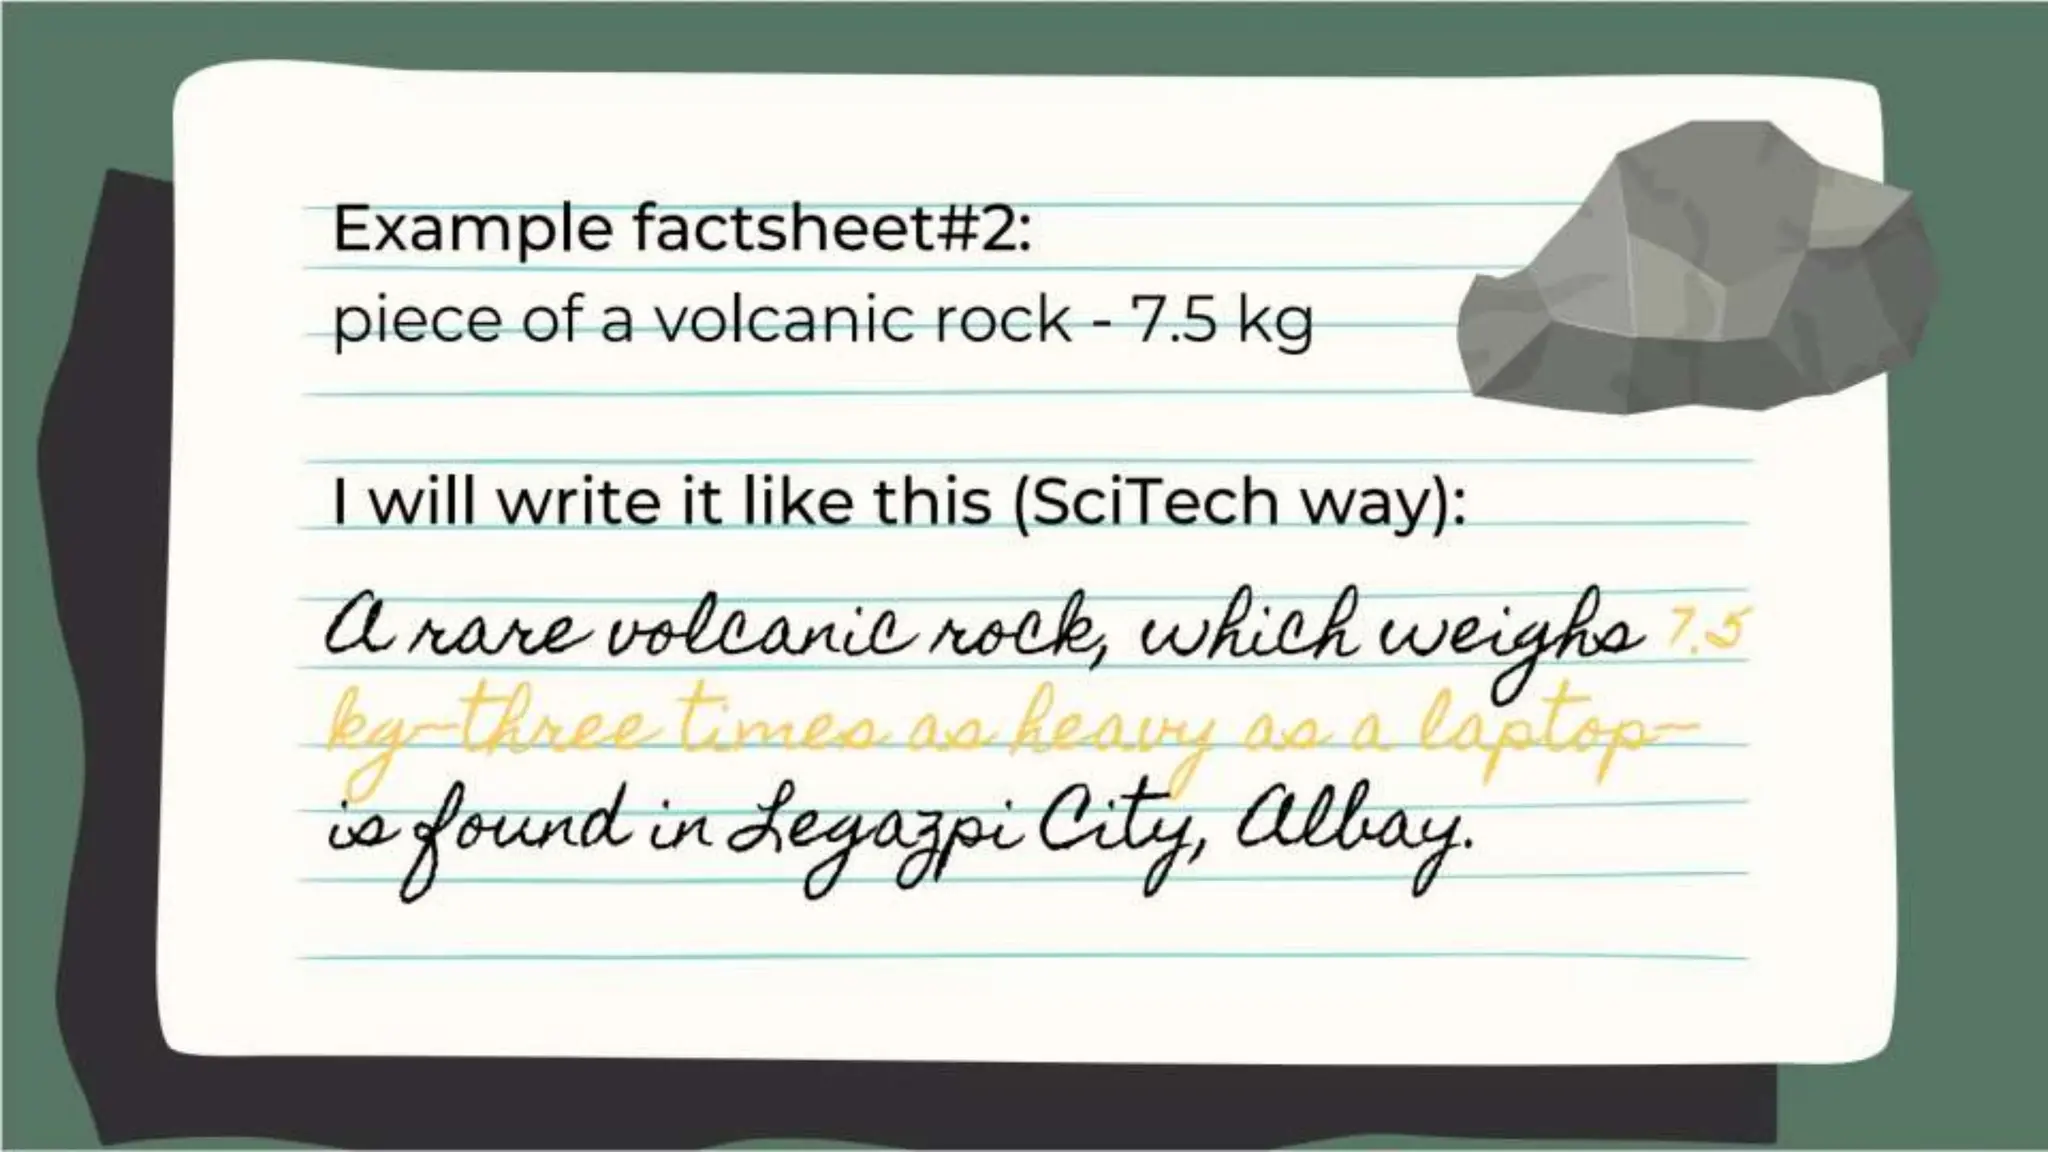 Example factsheet#2:
piece of a volcanic rock - 7.5 kg
I will write it like this (SciTech way):
A rare volcanic rock, which weighs 7.5
kg–three times as heavy as a laptop–
is found in Legazpi City, Albay.